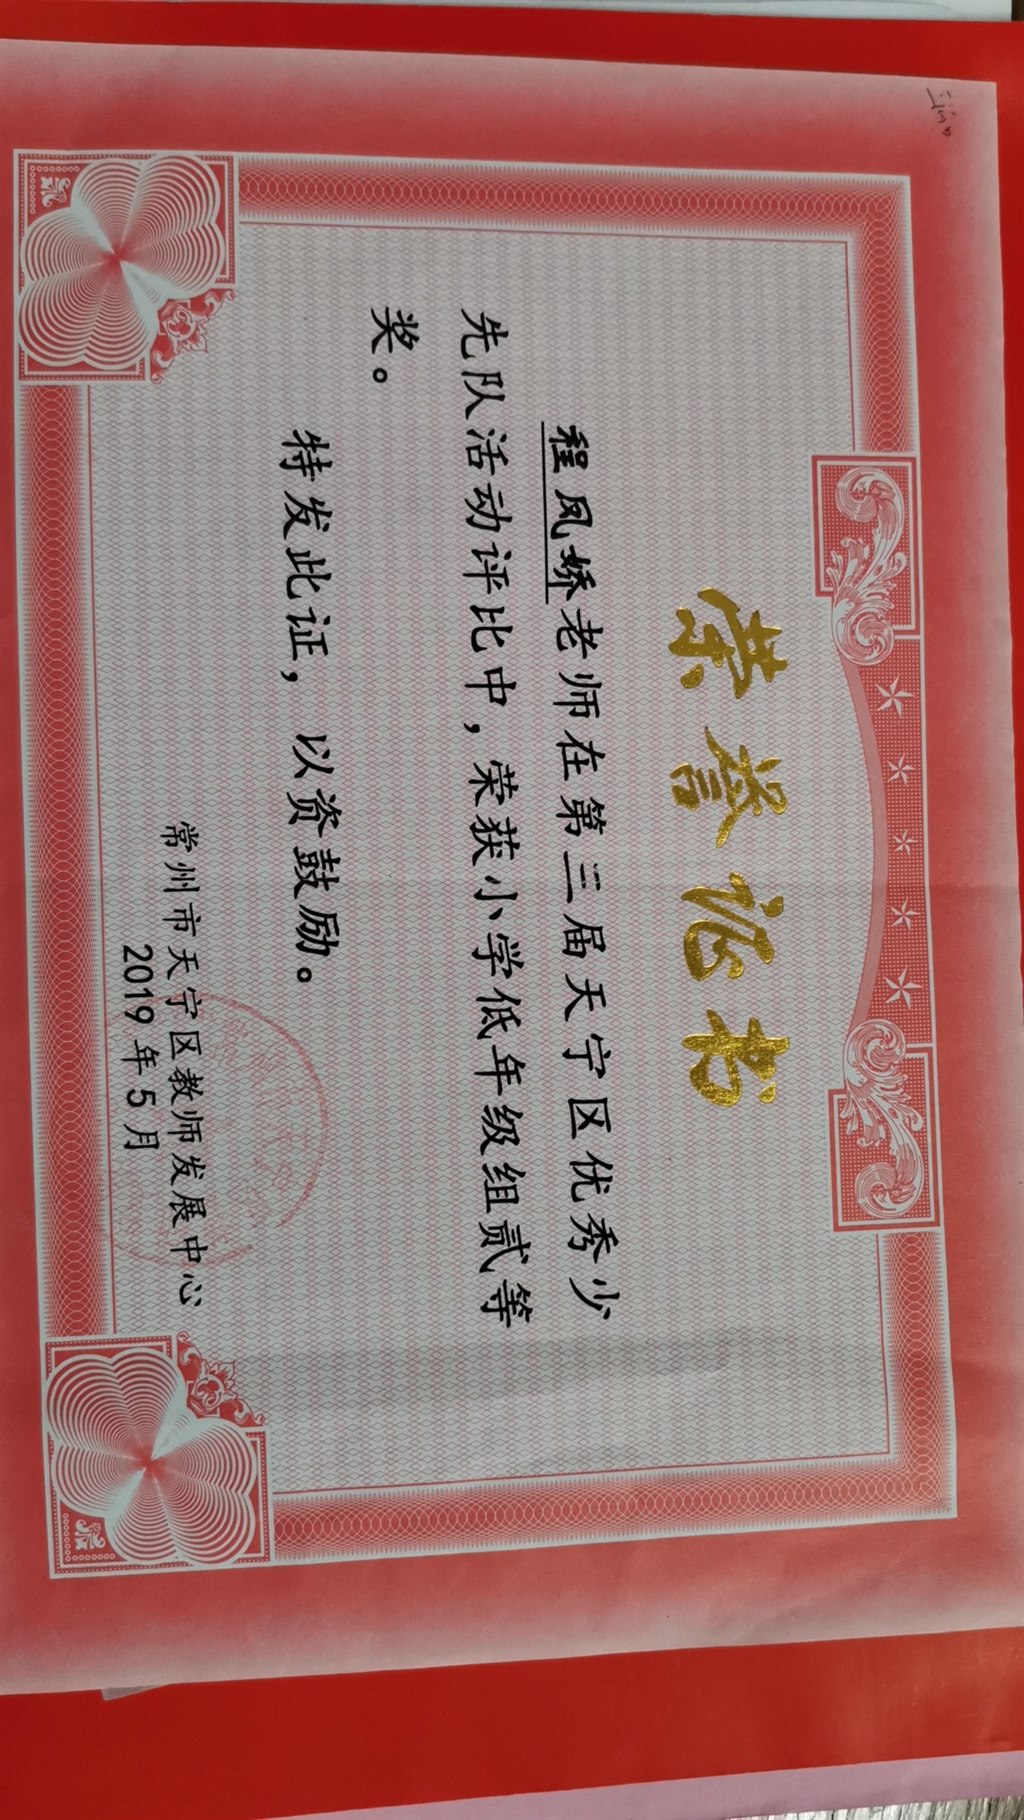 荣誉证书
程凤娇老师在第三届天宁区优秀少
先队活动评比中，荣获小学低年级组贰等
奖。
特发此证，以资鼓励。
常州市天宁区教师发展中心
2019年5月